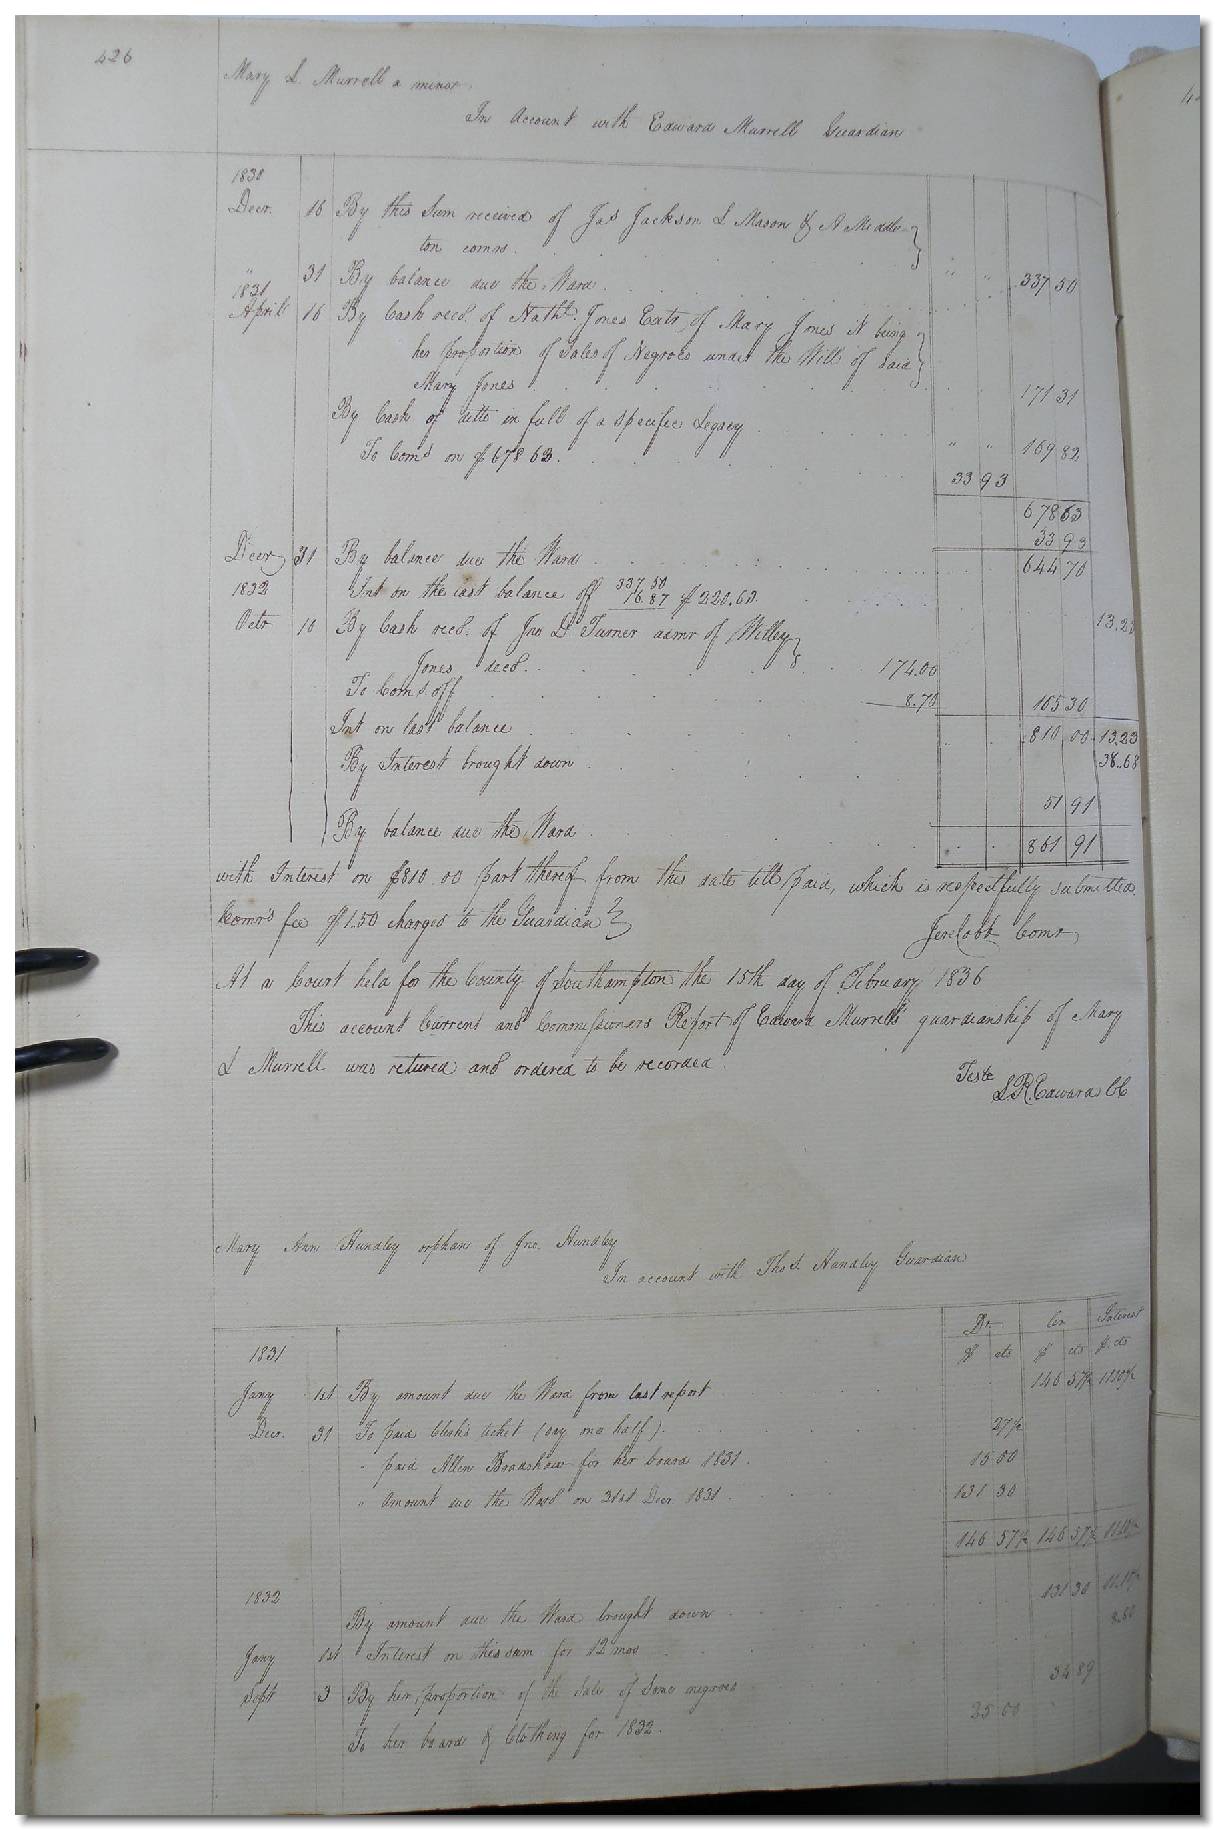 426
Mary L. Murrell a minor.
In Account with Edward Murrell Guardian
1830
Decr. 16 By this Sum received of Jas Jackson L Mason & A Middle-
ton comrs . . . } " " 337 50
" 31 By balance due the Ward . . .
1831
April 16 By Cash recd. of Nathl. Jones Extr of Mary Jones it being
her proportion of Sales of Negroes under the Will of said
Mary Jones . . . } 171 31
By Cash of ditto in full of a specific Legacy . . . " " 169 82
To Coms on $678 63 . . . 33 93
678 63
33 93
Decr 31 By balance due the Ward . . . 644 70
1832 Int on the last balance off 337.50
16.87 $220.63. 13.23
Octr 10 By Cash recd. of Jno D Turner admr of Willey
Jones decd. . . . } 174.00
To Coms off . . . 8.70 165 30
Int on last balance . . . 810 00 13.23
By Interest brought down . . . 38.68
51 91
By balance due the Ward . . . 861 91
with Interest on $810.00 part thereof from this date till paid, which is respectfully submitted.
Comr's fee $1.50 charged to the Guardian } Jere Cobb Comr
At a Court held for the County of Southampton the 15th day of February 1836
This account Current and Commissioners Report of Edward Murrells guardianship of Mary
L Murrell was retured and ordered to be recorded.
Teste
L R. Edwards CC
Mary Ann Hundley orphan of Jno. Hundley
In account with Thos. Hundley Guardian
Dr. Cr Interest
$ cts $ cts $. cts
1831
Jany 1st By amount due the Ward from last report . . . 146 57½ 11.10½
Decr. 31 To paid Clerk's ticket (say one half) . . . 27½
" paid Allen Bradshaw for her board 1831 . . . 15 00
" Amount due the Ward on 31st Decr 1831 . . . 131 30
146 57½ 146 57½ 11.10½
1832
By amount due the Ward brought down . . . 131 30 11.10½
Jany 1st Interest on this sum for 12 mos . . .
Sept 3 By her proportion of the Sale of some negroes 34 89
To her board & Clothing for 1832. 25 00